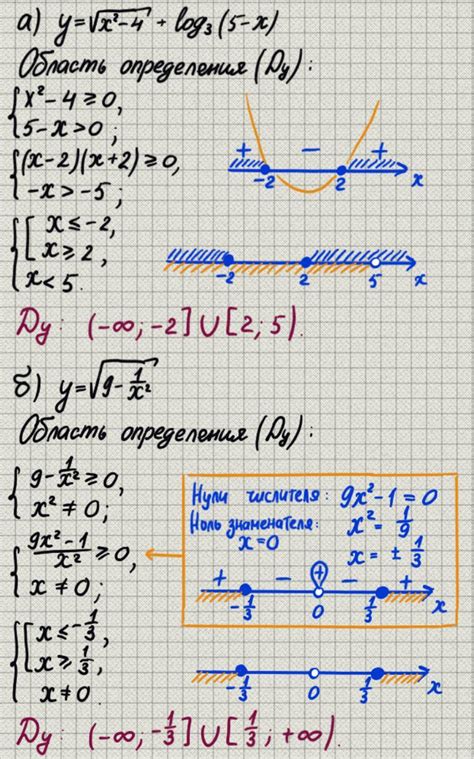 а) y=√(x²-4) + log₃(5-x)
Область определения (Dy):
{x²-4≥0,
5-x>0;
{(x-2)(x+2)≥0,
-x>-5;
+ − +
-2 2 x
{[x≤-2,
x≥2,
x<5.
-2 2 5 x
Dy: (-∞;-2]∪[2;5).
б) y=√(9-1/x²)
Область определения (Dy):
{9-1/x²≥0,
x²≠0;
{(9x²-1)/x²≥0,
x≠0;
Нули числителя: 9x²-1=0
Ноль знаменателя: x²=1/9
x=0 x=±1/3
+ − + − +
-1/3 0 1/3 x
{[x≤-1/3,
x≥1/3,
x≠0.
-1/3 0 1/3 x
Dy: (-∞;-1/3]∪[1/3;+∞).